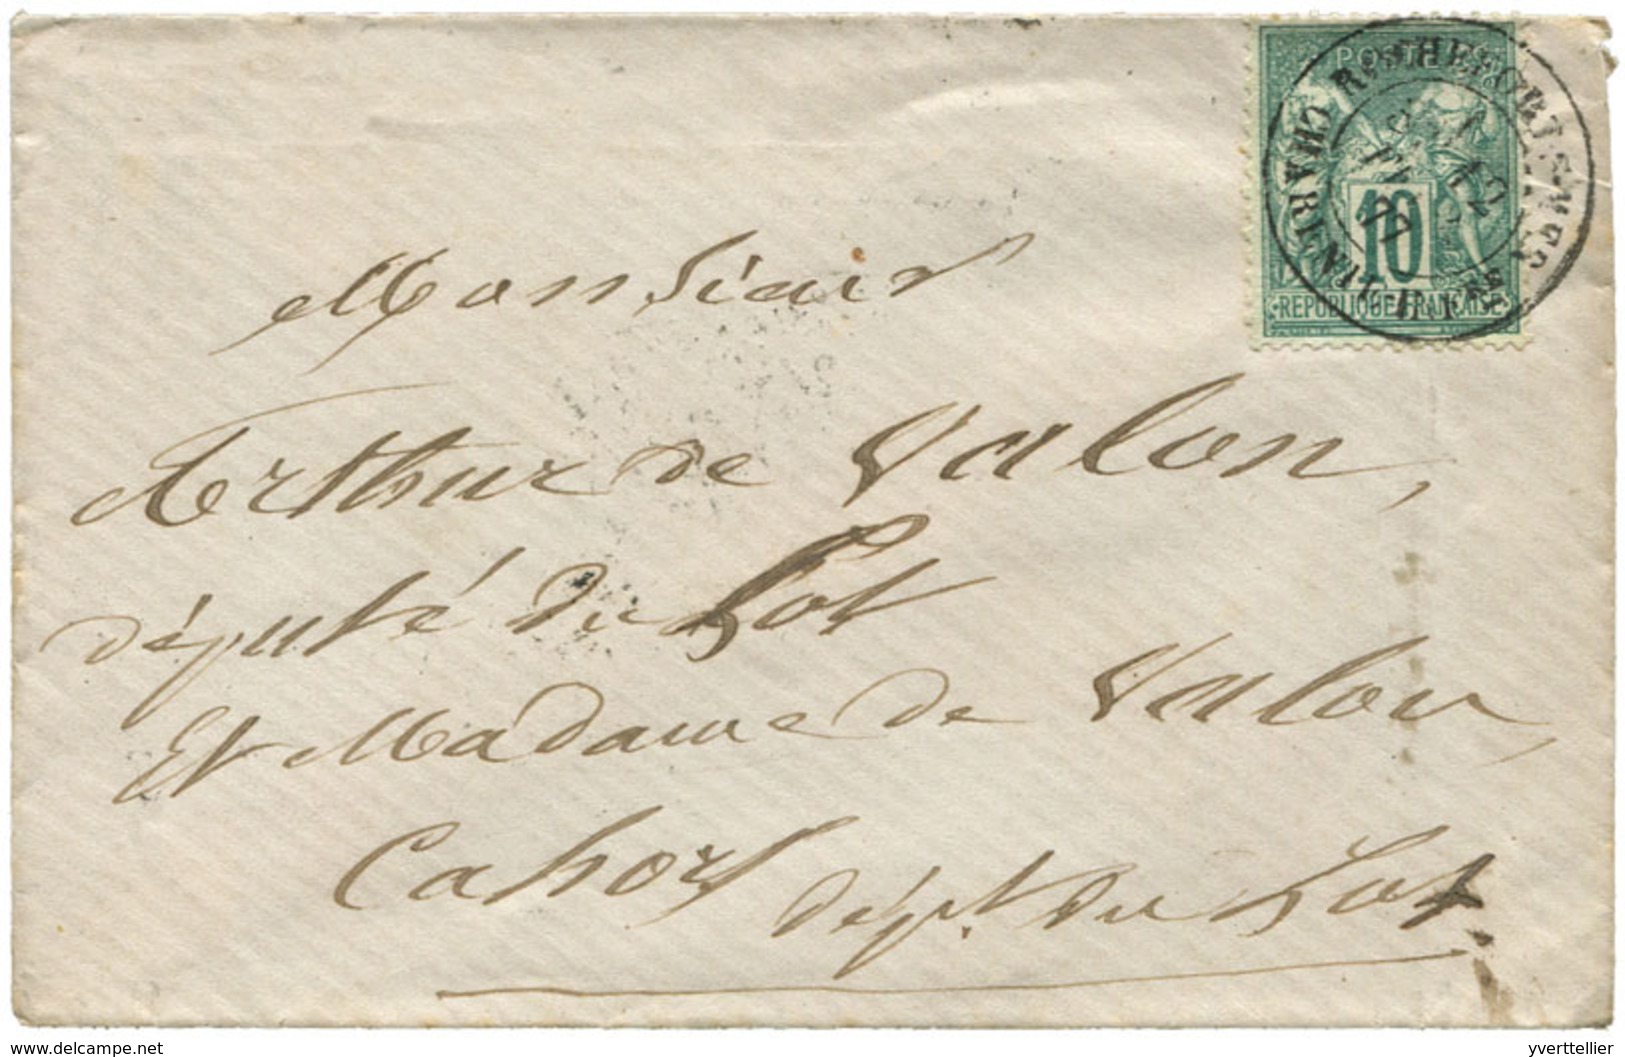 POSTE
10
REPUBLIQUE FRANCAISE
ROCHEFORT-S-MER
CHARENTE INFRE
12
77
Monsieur
Arthur de Valon,
député du Lot
Et Madame de Valon,
Cahors dépt. du Lot.
www.delcampe.net
yverttellier